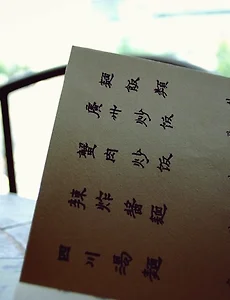 麵飯類
廣州炒飯
蟹肉炒飯
辣炸醬麵
四川湯麵